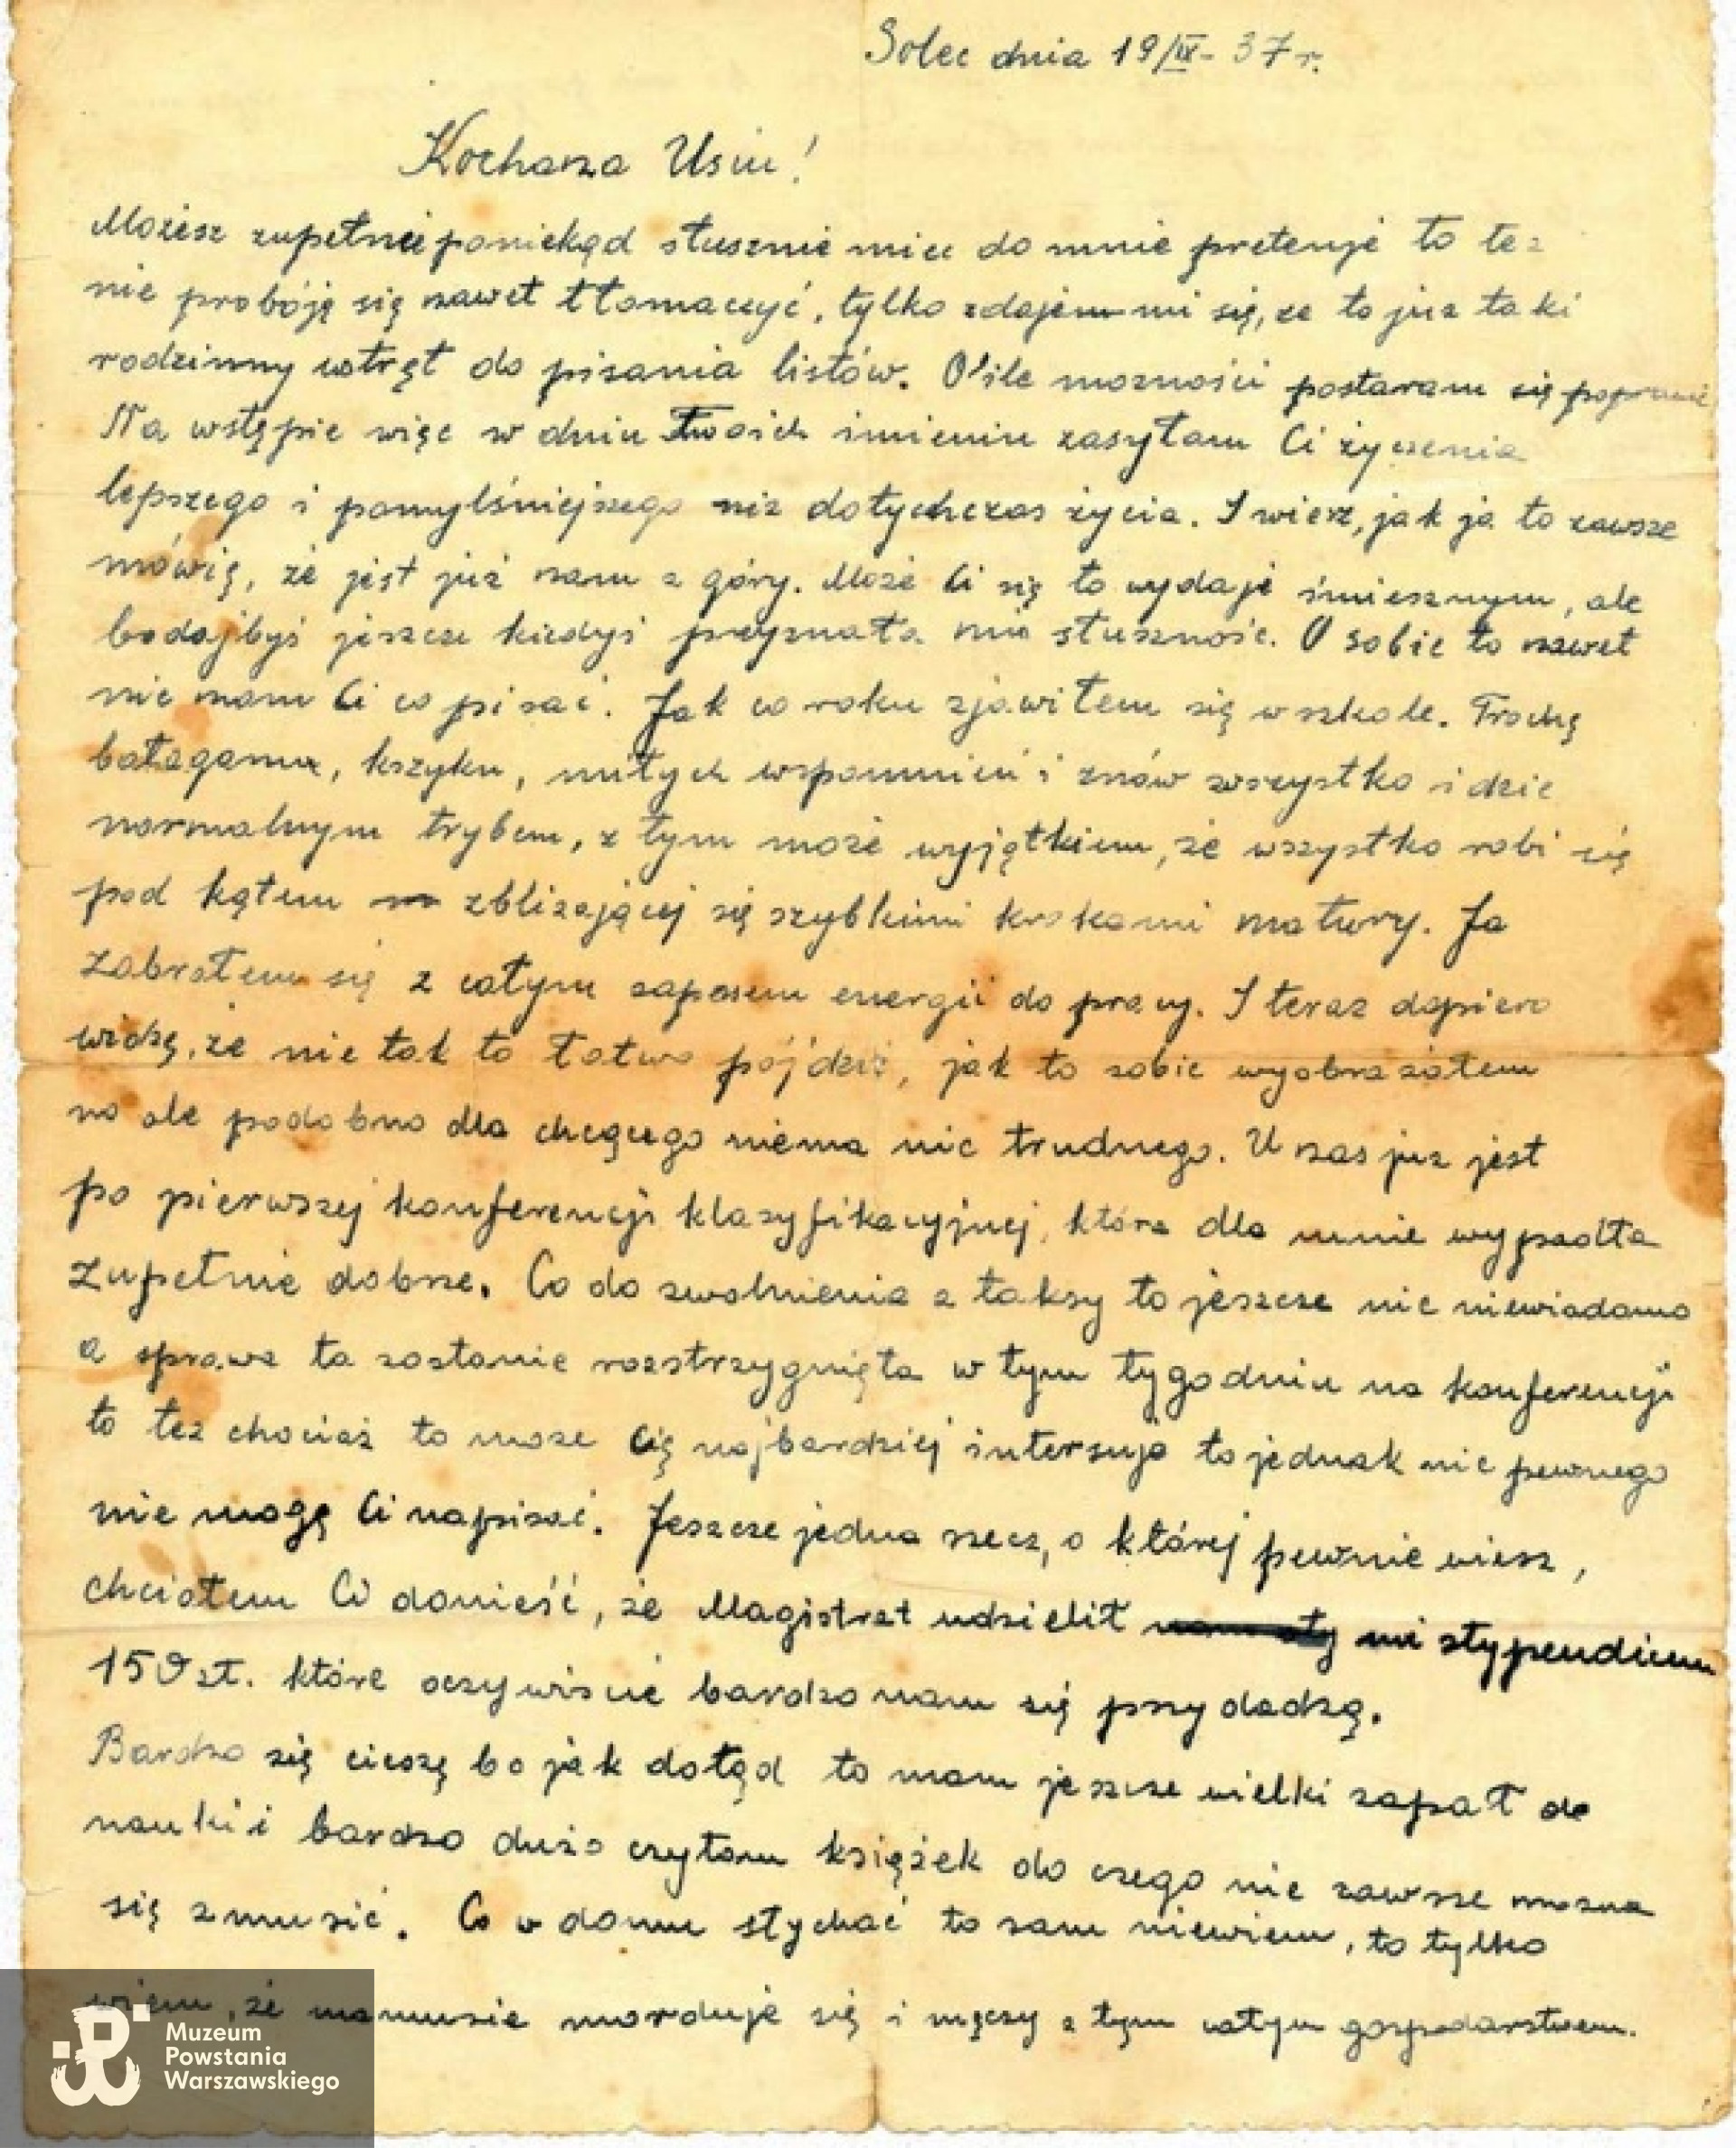 Solec dnia 19/IX-37r.
Kochana Usiu!
Możesz zupełnie poniekąd słusznie mieć do mnie pretensje to też
nie probóję się nawet tłomaczyć, tylko zdaje mi się, że to już taki
rodzinny wstręt do pisania listów. O ile możności postaram się poprawić
Na wstępie więc w dniu Twoich imienin zasyłam Ci życzenia
lepszego i pomyślniejszego niż dotychczas życia. I wiesz, jak ja to zawsze
mówię, że jest już nam z góry. Może Ci się to wydaje śmiesznym, ale
bodajbyś jeszcze kiedyś przyznała mie słuszność. O sobie to nawet
nie mam Ci co pisać. Jak co roku zjawiłem się w szkole. Trochę
bałaganu, kszyku, miłych wspomnień i znów wszystko idzie
normalnym trybem, z tym może wyjątkiem, że wszystko robi się
pod kątem zbliżającej się szybkimi krokami matury. Ja
zabrałem się z całym zapasem energii do pracy. I teraz dopiero
widzę, że nie tak to łatwo pójdzie, jak to sobie wyobrażałem
no ale podobno dla chcącego niema nic trudnego. U nas już jest
po pierwszej konferencji klasyfikacyjnej, która dla mnie wypadła
zupełnie dobrze. Co do zwolnienia z taksy to jeszcze nic niewiadomo
a sprawa ta zostanie rozstrzygnięta w tym tygodniu na konferencji
to też chociaż to może Cię najbardziej intersuje to jednak nic pewnego
nie mogę Ci napisać. Jeszcze jedna rzecz, o której pewnie wiesz,
chciałem Ci donieść, że Magistrat udzielił mi stypendium
150 zł. które oczywiście bardzo nam się przydadzą.
Bardzo się cieszę bo jak dotąd to mam jeszcze wielki zapał do
nauki i bardzo dużo czytam książek do czego nie zawsze można
się zmusić. Co w domu słychać to sam niewiem, to tylko
wiem, że mamusia morduje się i męczy z tym całym gospodarstwem.
Muzeum
Powstania
Warszawskiego